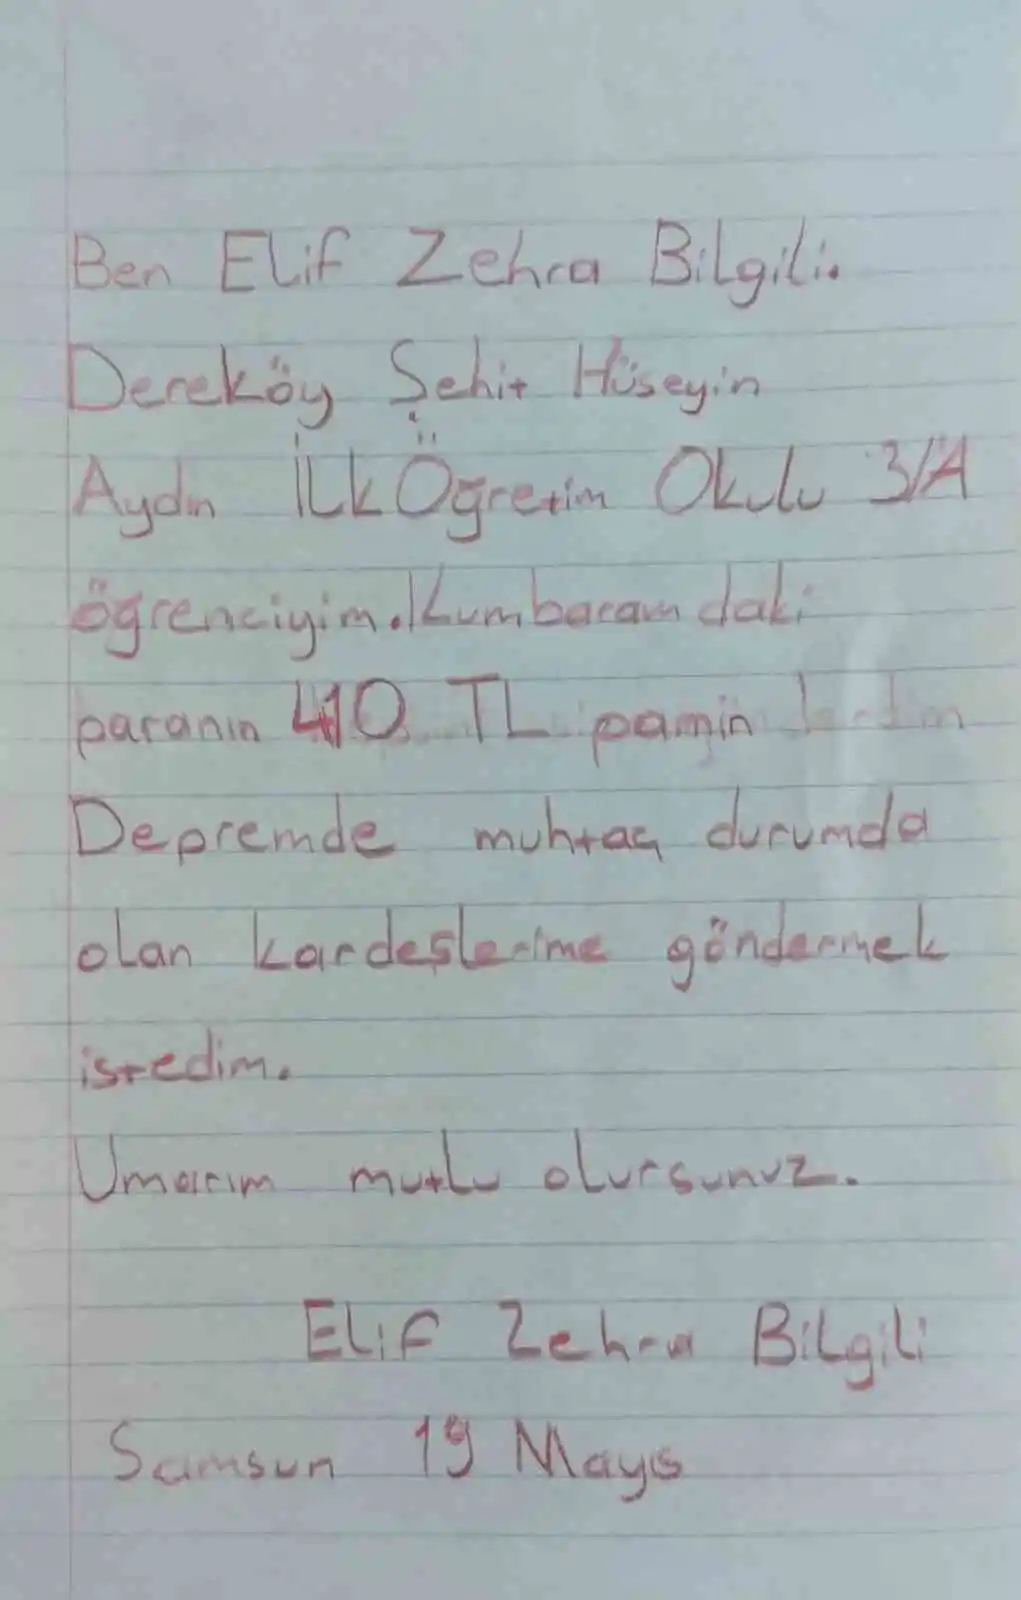 Ben Elif Zehra Bilgili.
Dereköy Şehit Hüseyin
Aydın İlk Öğretim Okulu 3/A
öğrenciyim. Kumbaramdaki
paranın 410 TL
Depremde muhtaç durumda
olan kardeşlerime göndermek
istedim.
Umarım mutlu olursunuz.
Elif Zehra Bilgili
Samsun 19 Mayıs